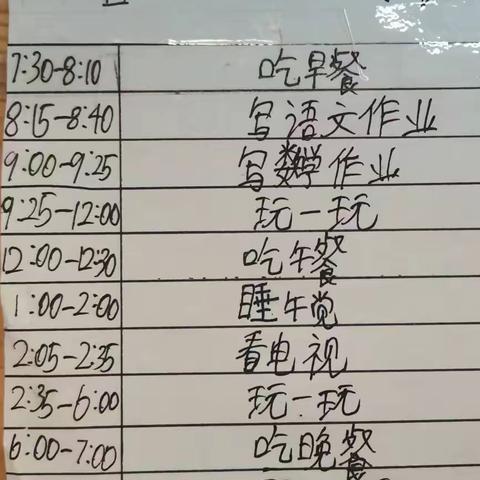 7:30-8:10 吃早餐
8:15-8:40 写语文作业
9:00-9:25 写数学作业
9:25-12:00 玩一玩
12:00-12:30 吃午餐
1:00-2:00 睡午觉
2:05-2:35 看电视
2:35-6:00 玩一玩
6:00-7:00 吃晚餐